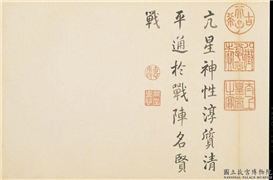 亢星神性淳質清
平通於戰陣名賢
戰
國立故宮博物院
NATIONAL PALACE MUSEUM